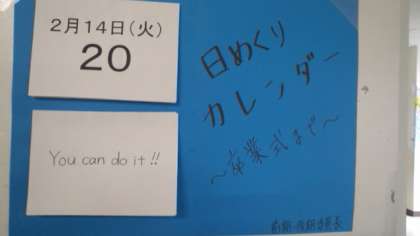 2月14日(火)
20
You can do it!!
日めくり
カレンダー
～卒業式まで～
前期・後期委員長